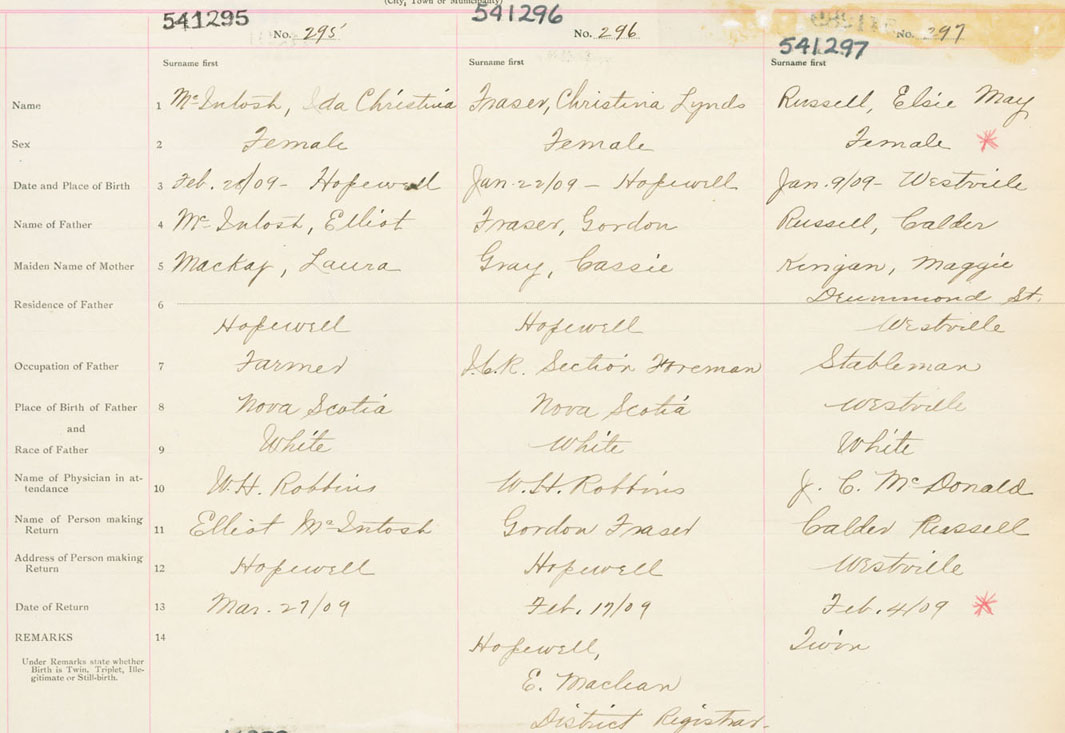 (City, Town or Municipality)
541295 541296 541297
No. 295 No. 296 No. 297
Surname first Surname first Surname first
Name 1 McIntosh, Ida Christina Fraser, Christina Lynds Russell, Elsie May
Sex 2 Female Female Female
Date and Place of Birth 3 Feb. 20/09 - Hopewell Jan. 22/09 - Hopewell Jan. 9/09 - Westville
Name of Father 4 McIntosh, Elliot Fraser, Gordon Russell, Calder
Maiden Name of Mother 5 Mackay, Laura Gray, Cassie Kerigan, Maggie
Residence of Father 6 Drummond St.
Hopewell Hopewell Westville
Occupation of Father 7 Farmer I.C.R. Section Foreman Stableman
Place of Birth of Father 8 Nova Scotia Nova Scotia Westville
and
Race of Father 9 White White White
Name of Physician in at-
tendance 10 W.H. Robbins W.H. Robbins J. C. McDonald
Name of Person making
Return 11 Elliot McIntosh Gordon Fraser Calder Russell
Address of Person making
Return 12 Hopewell Hopewell Westville
Date of Return 13 Mar. 27/09 Feb. 17/09 Feb. 4/09
REMARKS 14 Hopewell, Twin
Under Remarks state whether
Birth is Twin, Triplet, Ille-
gitimate or Still-birth.
E. Maclean
District Registrar.